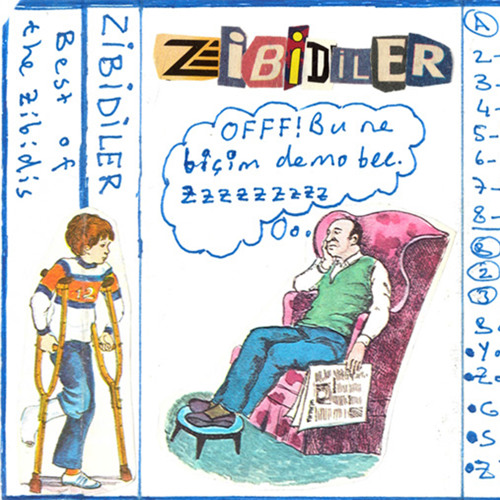 ZİBİDİLER
Best of
the Zibidis
ZİBİDİLER
OFFF! Bu ne
biçim demo bee.
zzzzzzzzz
12
A
2-
3-
4-
5-
6-
7-
8-
B
2
3